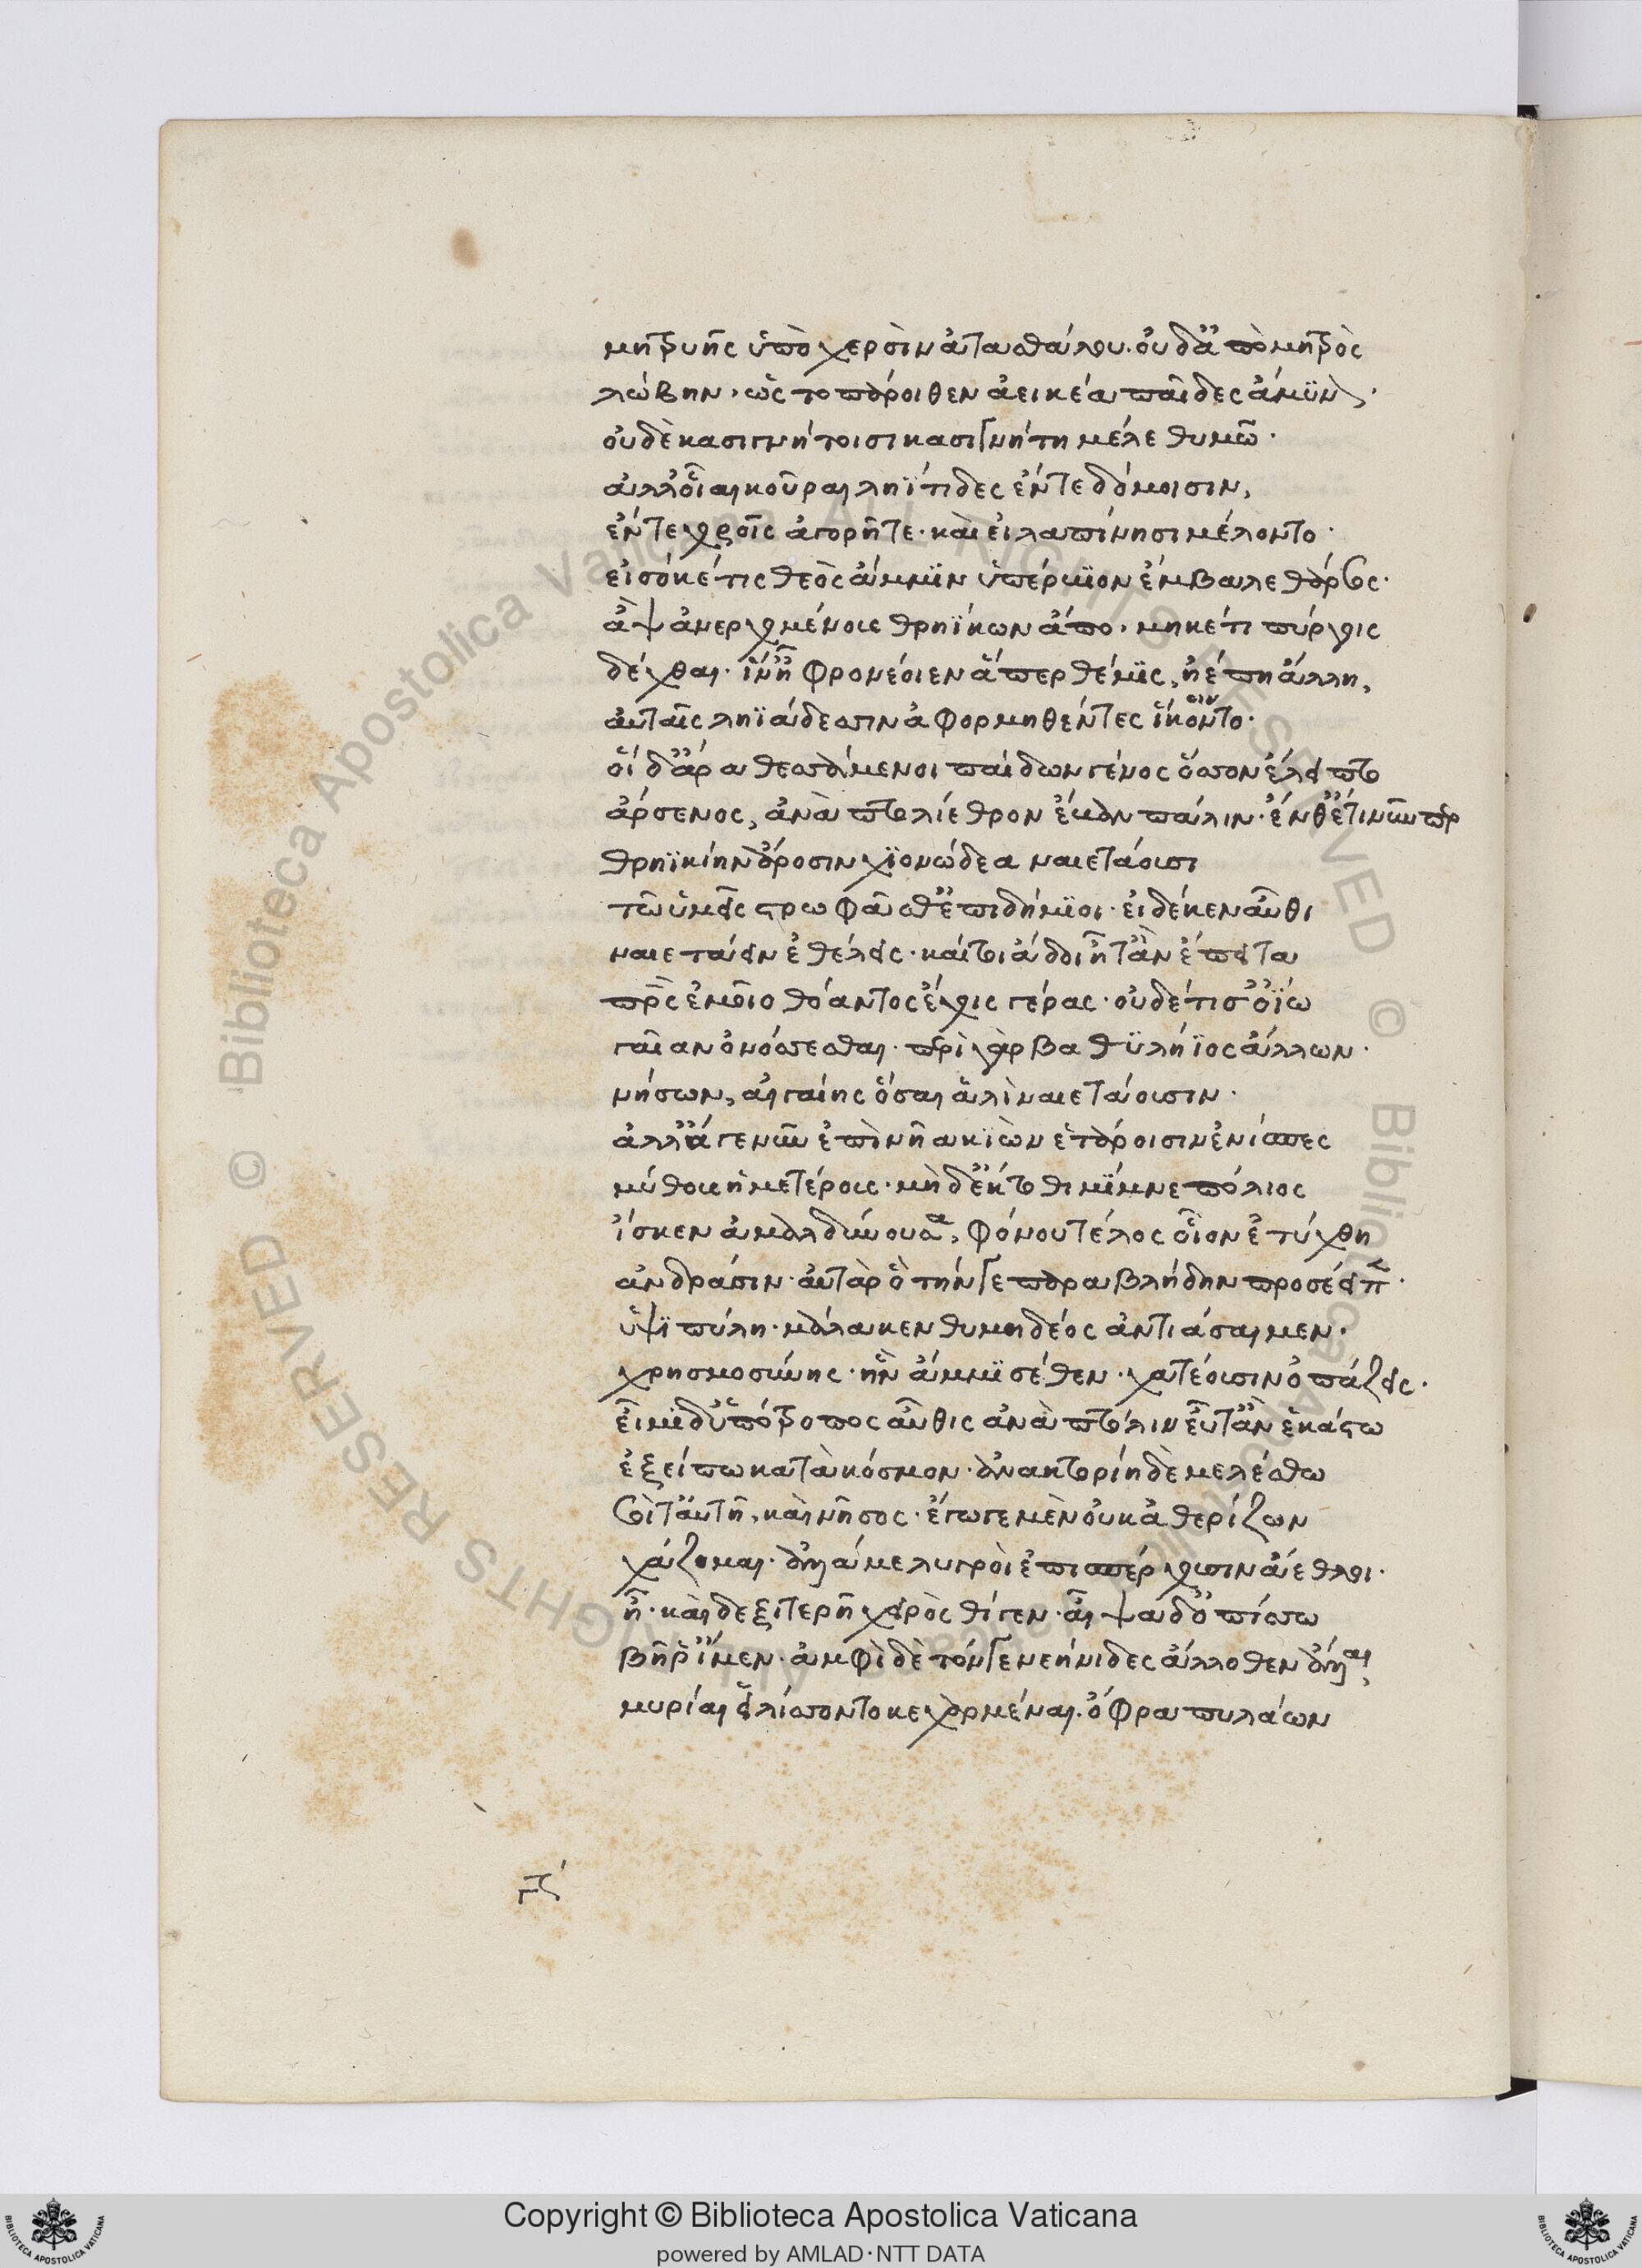 μητρυῆς ὑπὸ χερσὶν ἀτασθάλου. οὐδ' ἀπὸ μητρὸς
λώβην, ὡς τοπάροιθεν ἀεικέα παῖδες ἄμυνον.
οὐδὲ κασιγνήτοισι κασιγνήτη μέλε θυμῶ.
ἀλλ' οἶαι κοῦραι ληϊτιδες ἔν τε δόμοισιν,
ἔν τε χοροῖς ἀγορῆ τε. καὶ εἰλαπίνησι μέλοντο.
εἰσόκέ τις θεὸς ἄμμιν ὑπέρβιον ἔμβαλε θάρσος.
ἂψ ἀνερχομένους θρηΐκων ἄπο, μηκέτι πύργοις
δέχθαι. ἵν' ἢ φρονέοιεν ἅπερ θέμις, ἠέ πη ἄλλη,
αὐταῖς ληϊάδεσσιν ἀφορμηθέντες ἵκοιντο.
οἱ δ' ἄρα θεσσάμενοι παίδων γένος ὅσσον ἔλειπτο
ἄρσενος, ἀνὰ πτολίεθρον ἔβαν πάλιν. ἔνθ' ἔτι νῦν περ
θρηϊκίην ἄροσιν χϊονώδεα ναιετάουσι
τῶ ὑμεῖς στρωφᾶσθ' ἐπιδήμϊοι. εἰ δέ κεν αὖθι
ναιετάειν ἐθέλεις. καί τοι ἅδοι ἦτ' ἂν ἔπειτα
πατρὸς ἐμοῖο θόαντος ἔχοις γέρας. οὐδέ τι σ' ὀΐω
γαῖαν ὀνόσσεσθαι. περὶ γὰρ βαθϋλήϊος ἄλλων.
νήσων, αἰγαίης ὅσαι ἁλὶ ναιετάουσιν.
ἀλλ' ἄγε νῦν ἐπὶ νῆα κϊὼν ἑτάροισιν ἐνίσπες
μύθους ἡμετέρους. μὴ δ' ἔκτοθι μίμνε πόλιος
ἴσκεν ἀμαλδύνουσα, φόνου τέλος οἷον ἐτύχθη
ἀνδράσιν. αὐτὰρ ὃ τήνγε παραβλήδην προσέειπε.
ὑψϊπύλη. μάλα κεν θυμηδέος ἀντιάσαιμεν.
χρησμοσύνης. ἣν ἄμμϊ σέθεν. χατέουσιν ὀπάζεις.
εἶμι δ' ὑπότροπος αὖθις ἀνὰ πτόλιν εὖτ' ἂν ἕκάστω
ἐξείπω κατὰ κόσμον. ἀνακτορίη δὲ μελέσθω
σοίτ' αὐτῆ, καὶ νῆσος. ἔγωγε μὲν οὐκ ἀθερίζων
χάζομαι. ἀλλά με λυγροὶ ἐπισπέρχουσιν ἄεθλοι.
ἦ. καὶ δεξιτερῆ χειρὸς θίγεν. αἶψα δ' ὀπίσσω
βῆ ῥ' ἴμεν. ἀμφὶ δὲ τόνγε νεήνιδες ἄλλοθεν ἄλλαι,
μυρίαι εἱλίσσοντο κεχαρμέναι. ὄφρα πυλάων